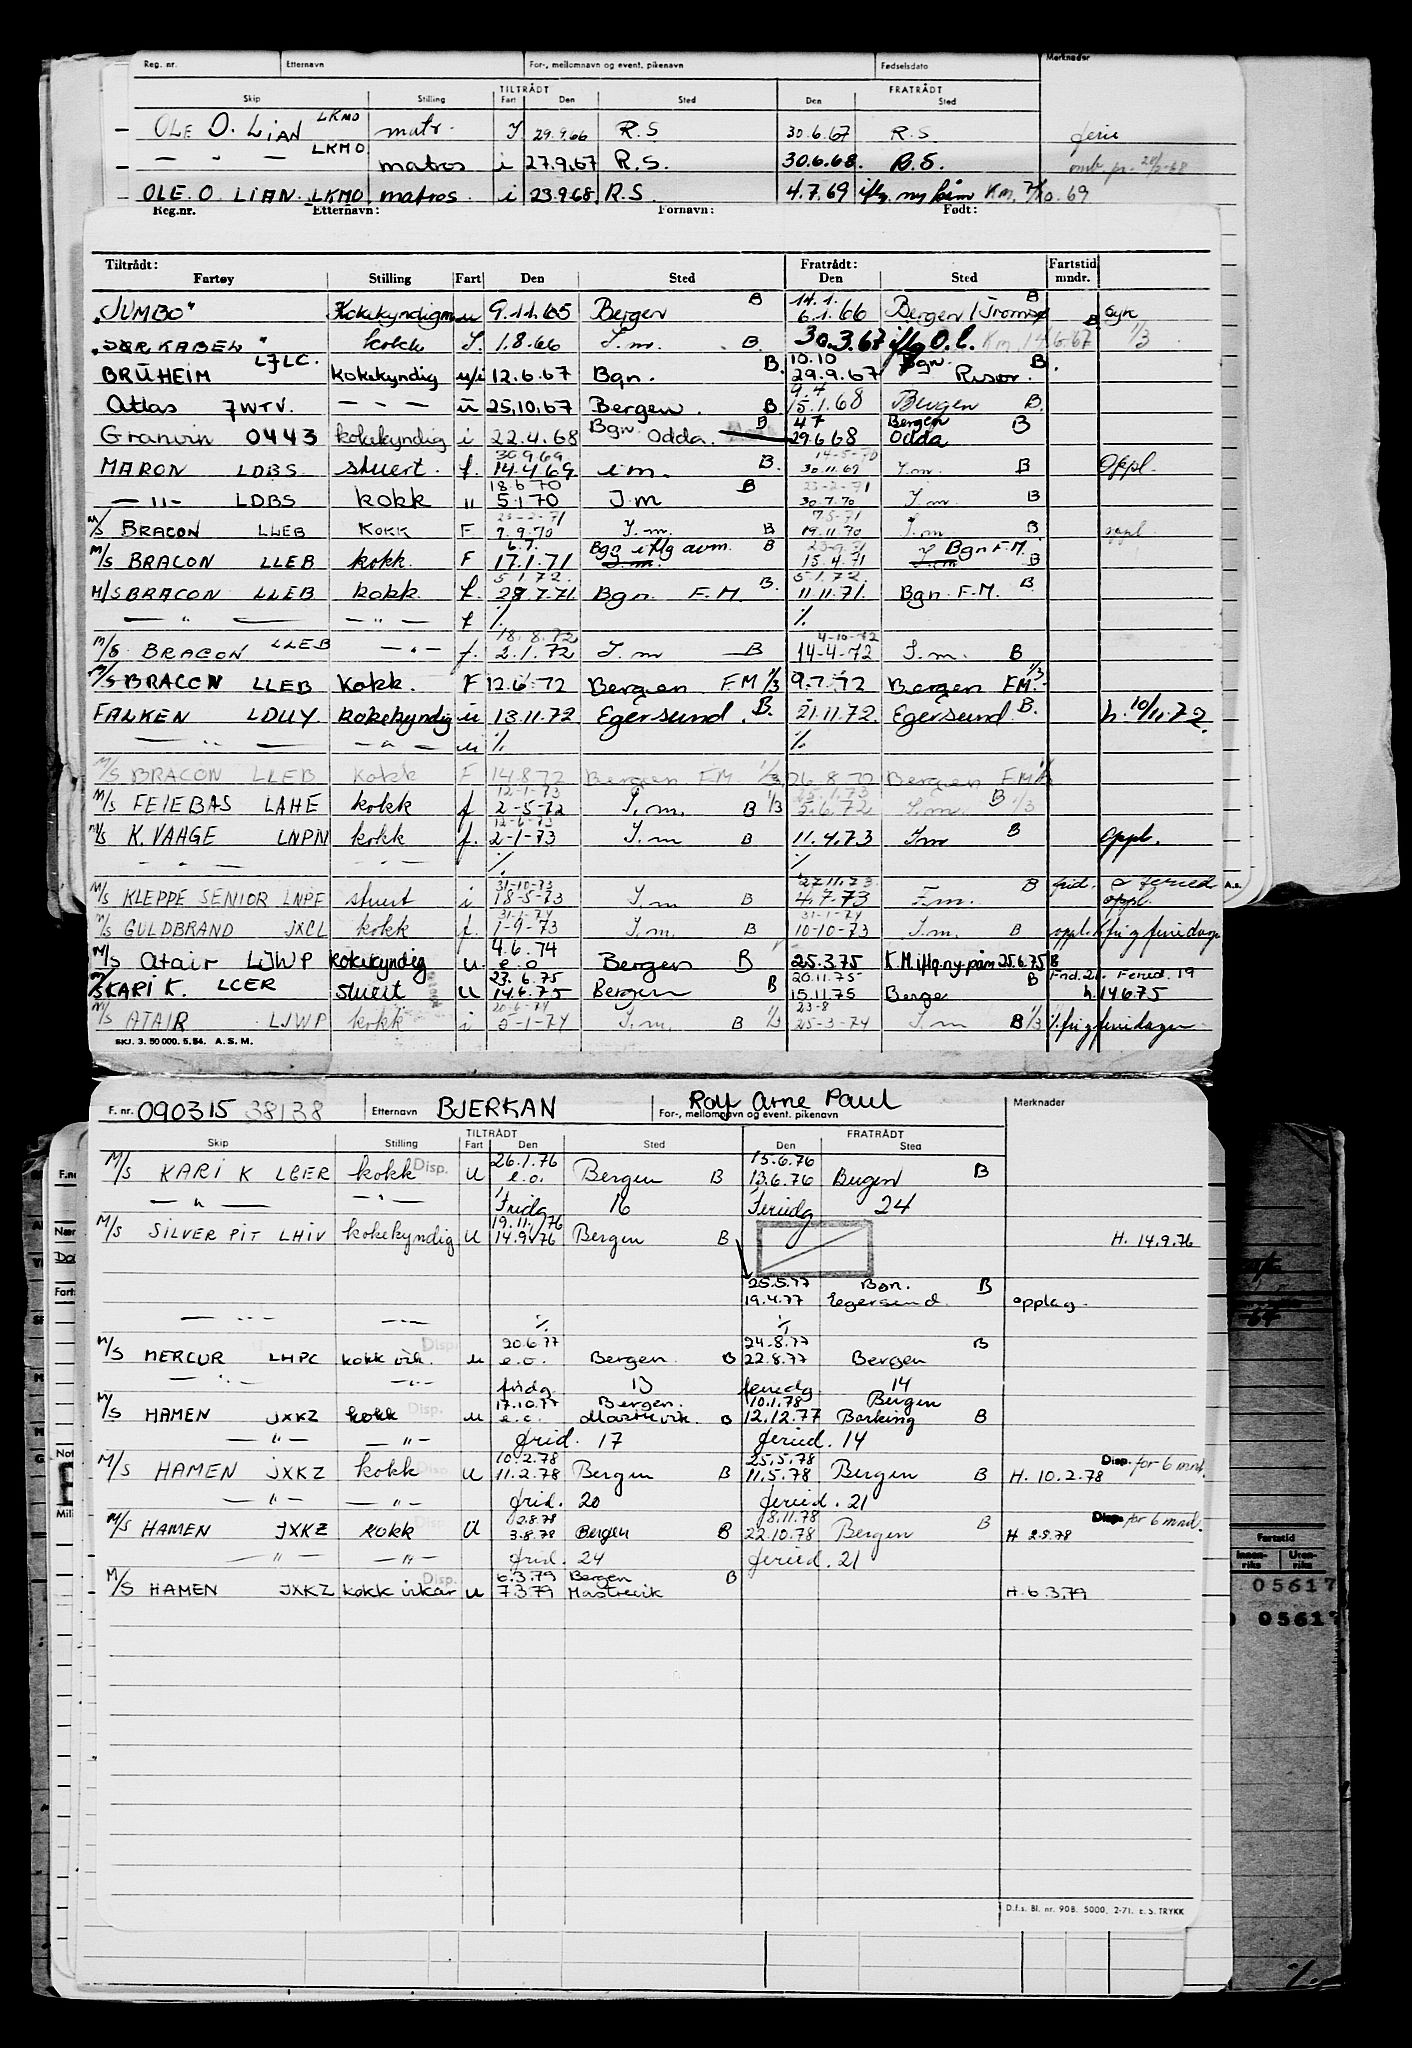 Reg. nr. Etternavn For-, mellomnavn og event. pikenavn Fødselsdato Merknader
TILTRÅDT FRATRÅDT
Skip Stilling Fart Den Sted Den Sted
OLE O. LIAN LKMO matr. I 29.9.66 R.S 30.6.67 R.S ferie
— " — LKMO matros i 27.9.67 R.S. 30.6.68. R.S.
OLE. O LIAN. LKMO matros. i 23.9.68 R.S 4.7.69 iflg. ny
Reg.nr. Etternavn: Fornavn: Født:
Tiltrådt: Fratrådt: Fartstid
Fartøy Stilling Fart Den Sted Den Sted mndr.
"JUMBO" Kokekyndig u 9.11.65 Bergen B 14.1. 6.1.66 Bergen/Tromsø B syk
kokk I. 1.8.66 I.m. B. 30.3.67 iflg O.l. Km. 14.6.67 B 1/3
BRUHEIM LJLC. kokekyndig u/i 12.6.67 Bgn. B. 10.10 29.9.67 Bgn. Risør. B.
Atlas JWTV. — " — u 25.10.67 Bergen. B. 4.4 15.1.68 Bergen B.
Granvin 0443 kokekyndig i 22.4.68 Bgn. Odda. B 4.7 29.6.68 Bergen Odda B
MARON LDBS. stuert. f. 30.9.69 14.4.69 i.m. B. 14-5-70 30.11.69 I.m. B Oppl.
— " — LDBS kokk " 18.6.70 5.1.70 I.m B 23-2-71 30.7.70 I.m B
M/S BRACON LLEB KOKK F 23-2-71 9.9.70 I.m. B 7.5-71 19.11.70 I.m B oppl.
M/S BRACON LLEB kokk. F 6.7. 17.1.71 Bgn iflg avm. I.m. B 15.4.71 Bgn F.M. I.m B
M/S BRACON LLEB kokk. f. 5.1.72. 28.7.71 Bgn. F.M. B. 5.1.72. 11.11.71. Bgn. F.M. B
— " — — " — f %. %.
M/S BRACON LLEB — " — f. 18.8.72 2.1.72 I.m B 4-10-72 14-4-72 I.m. B
M/S BRACON LLEB Kokk. F 12.6.72 Bergen F.M 1/3 9.7.72 Bergen F.M. 1/3
FALKEN LDUY. kokekyndig u 13.11.72 Egersund. B. 21.11.72. Egersund B. h. 10/11.72.
— " — — " — u %. %.
M/S BRACON LLEB Kokk F 14.8.72 Bergen F.M. 1/3 26.8.72 Bergen F.M 1/3
M/S FEIEBAS LAHE kokk f 12-1-73 2-5-72 I.m. B 1/3 25.1.73 5.6.72 I.m. B 1/3
M/S K. VAAGE LNPN kokk f. 12-6-73 2-1-73 I.m B 11.4.73 I.m B Oppl.
— " — — " — %. %.
M/S KLEPPE SENIOR LNPF stuert i 31-10-73 18-5-73 I.m B 27.11.73 4.7.73 I.m. B frid. o feried oppl.
M/S GULDBRAND JXCL kokk f. 31-1-74 1-9-73 I.m. B 31-1-74 10-10-73 I.m. B oppl. fri g feriedager
M/S Atair LJWP kokekyndig u. 4.6.74 e.o Bergen B 25.3.75 K.M. iflg. ny påm 25.6.75 B
M/S KARI K. LCER stuert u 23.6.75 14.6.75 Bergen B 20.11.75 15.11.75 Berge B Frid. 21. Feried. 19 h. 14.6.75
M/S ATAIR LJWP kokk i 20-6-74 5-1-74 I.m. B 1/3 23-8 25-3-74 I.m B 1/3 %. fri g feriedager
SKJ. 3. 50 000. 5.54. A.S.M.
F. nr. 090315 38138 Etternavn BJERKAN For-, mellomnavn og event. pikenavn Rolf Arne Paul Merknader
TILTRÅDT FRATRÅDT
Skip Stilling Fart Den Sted Den Sted
M/S KARI K LCER kokk Disp. U 26.1.76 e.o. Bergen B 15.6.76 13.6.76 Bergen B
— " — — " — Fridg 16 Feriedg 24
M/S SILVER PIT LHIV kokekyndig U 19.11./76 14.9.76 Bergen B H. 14.9.76
25.5.77 Bgn. B
19.4.77 Egersund. opplag.
— " — — " — %. %.
M/S MERCUR LHPC kokk vik. Disp. u 20.6.77 e.o. Bergen. B 24-8.77 22.8.77 Bergen B
— " — — " — fridg 13 feriedg 14
M/S HAMEN JXKZ kokk Disp. u 17.10.77 e.o. Bergen. Mastrevik. B 10.1.78 12.12.77 Bergen Barking B
— " — — " — frid. 17 feried. 14
M/S HAMEN JXKZ kokk Disp. U 10.2.78 11.2.78 Bergen B 25.5.78 11.5.78 Bergen B H. 10.2.78 Disp. for 6 mnd.
— " — — " — frid. 20 feried. 21
M/S HAMEN JXKZ kokk Disp. U 2.8.78 3.8.78 Bergen B 8.11.78 22.10.78 Bergen B H 2.8.78 Disp. for 6 mnd.
— " — — " — frid. 24 feried. 21
M/S HAMEN JXKZ kokk vikar Disp. U 6.3.79 7.3.79 Bergen Mastrevik B H. 6.3.79
D.f.s. Bl. nr. 90B. 5000. 2-71. E. S. TRYKK
Fartstid
Innen-riks Uten-riks
05617
05617